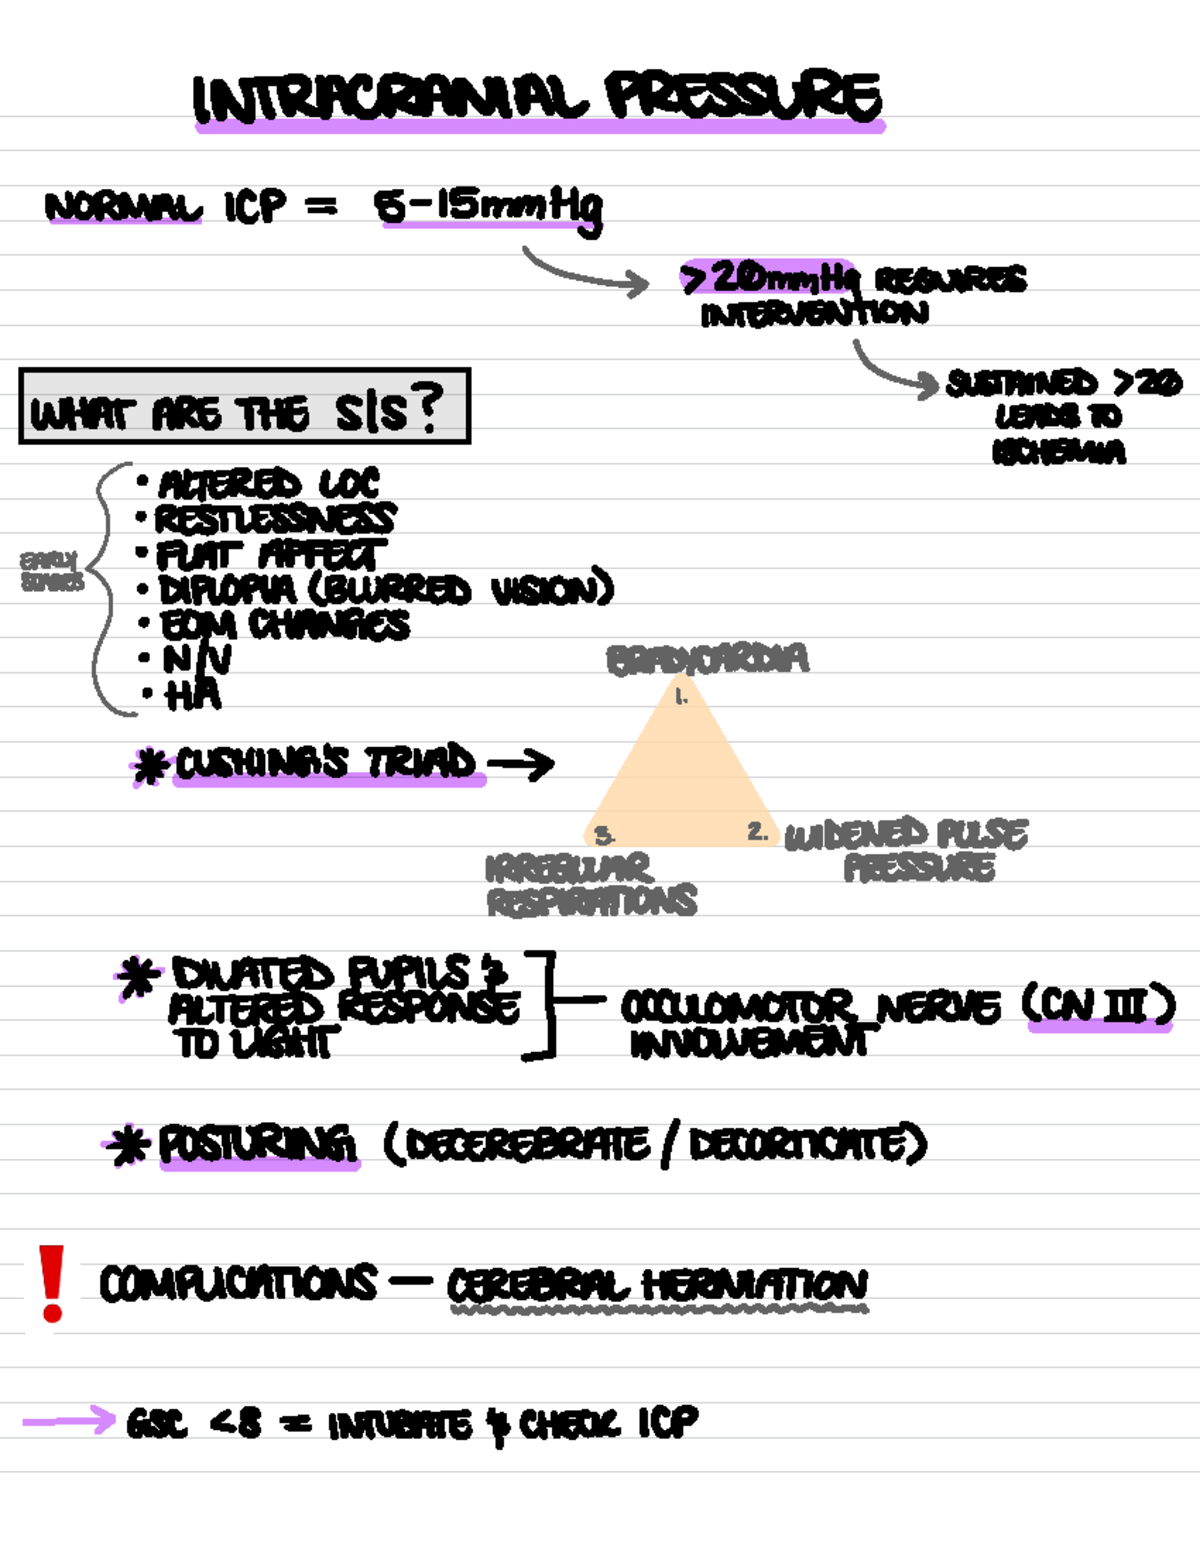 INTRACRANIAL PRESSURE
NORMAL ICP = 5-15mmHg
>20mmHg REQUIRES
INTERVENTION
SUSTAINED >20
LEADS TO
ISCHEMIA
WHAT ARE THE S|S?
EARLY
SIGNES
• ALTERED LOC
• RESTLESSNESS
• FLAT AFFECT
• DIPLOPIA (BLURRED VISION)
• EOM CHANGES
• N/V
• HA
* CUSHING'S TRIAD →
BRADYCARDIA
1.
3.
2. WIDENED PULSE
PRESSURE
IRREGULAR
RESPIRATIONS
* DILATED PUPILS &
ALTERED RESPONSE
TO LIGHT
OCCULOMOTOR NERVE (CN III)
INVOLVEMENT
* POSTURING (DECEREBRATE / DECORTICATE)
! COMPLICATIONS — CEREBRAL HERNIATION
→ GSC <8 = INTUBATE & CHECK ICP